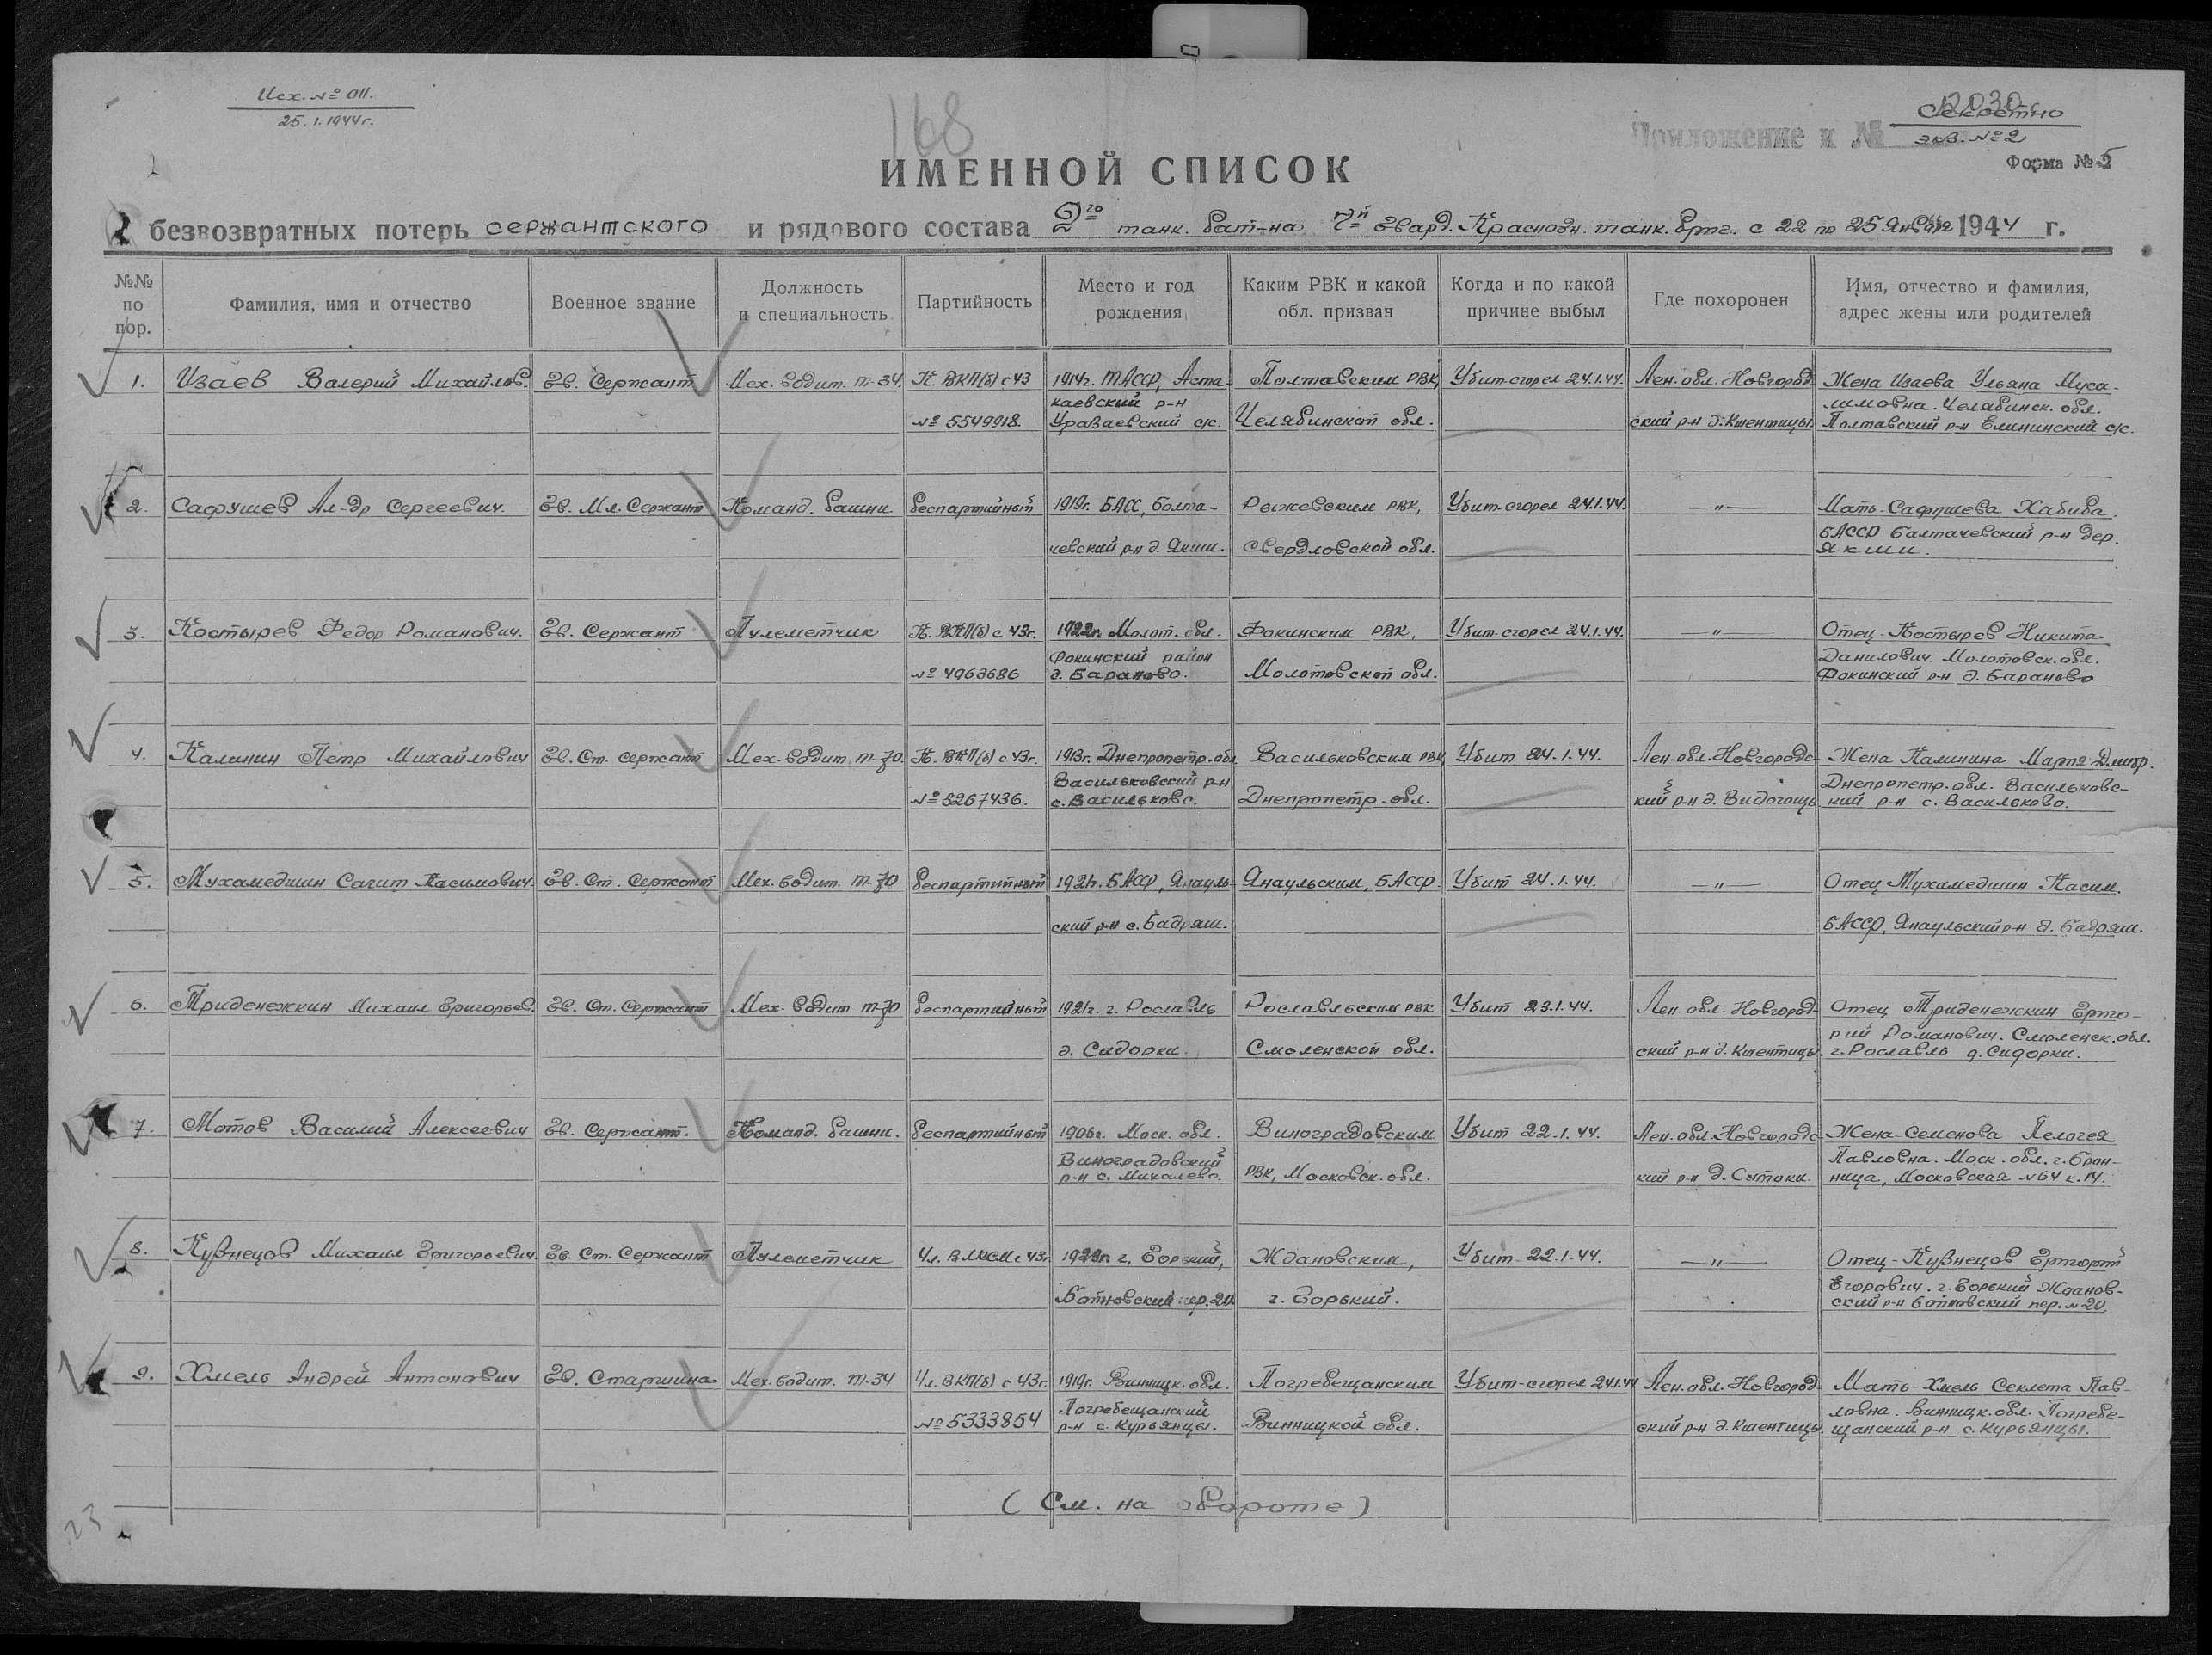 Исх. №011.
25.1.1944г.
168
12030с
Секретно
экз. №2
Приложение к №
Форма №
ИМЕННОЙ СПИСОК
безвозвратных потерь сержантского и рядового состава 2го танк. бат-на 7й Гвард. Краснозн. танк. бриг. с 22 по 25 января 1944 г.
№№ по пор.
Фамилия, имя и отчество
Военное звание
Должность и специальность
Партийность
Место и год рождения
Каким РВК и какой обл. призван
Когда и по какой причине выбыл
Где похоронен
Имя, отчество и фамилия, адрес жены или родителей
1. Изаев Валерий Михайлов. Гв. Сержант Мех. водит. Т-34. К. ВКП(б) с 43 1914г. ТАССР, Акта- Полтавским РВК, Убит-сгорел 24.1.44. Лен. обл. Новгород- Жена Изаева Ульяна Муса-
каевский р-н лимовна. Челябинск. обл.
№ 5549918. Уразаевский с/с. Челябинской обл. ский р-н д. Кшентицы. Полтавский р-н Елининский с/с.
2. Сафушев Ал-др Сергеевич. Гв. Мл. Сержант Команд. башни беспартийный 1919г. БАСС, Болта- Режевским РВК, Убит-сгорел 24.1.44. —"— Мать-Сафушева Хабиба.
БАССР Балтачевский р-н дер.
чевский р-н д. Якши. Свердловской обл. Якши.
3. Костырев Федор Романович. Гв. Сержант Пулеметчик К. ВКП(б) с 43г. 1922г. Молот. обл. Фокинским РВК, Убит-сгорел 24.1.44. —"— Отец-Костырев Никита-
Фокинский район Данилович. Молотовск. обл.
№ 4963686 д. Бараново. Молотовской обл. Фокинский р-н д. Бараново
4. Калинин Петр Михайлович Гв. Ст. Сержант Мех. водит Т-70. К. ВКП(б) с 43г. 1913г. Днепропетр. обл Васильковским РВК Убит 24.1.44. Лен. обл. Новгородс- Жена Калинина Мария Дмитр.
Васильковский р-н Днепропетр. обл. Васильковс-
№ 5267436. с. Васильково. Днепропетр. обл. кий р-н д. Видогощь кий р-н с. Васильково.
5. Мухамедшин Сагит Касимович. Гв. Ст. Сержант Мех. водит. Т-70 беспартийный 1921г. БАССР, Янауль- Янаульским, БАССР. Убит 24.1.44. —"— Отец Мухамедшин Касим.
ский р-н с. Бадряш. БАССР, Янаульский р-н д. Бадряш.
6. Триденежкин Михаил Григорьев. Гв. Ст. Сержант Мех. водит Т-70 беспартийный 1921г. г. Рославль Рославльским РВК Убит 23.1.44. Лен. обл. Новгород- Отец Триденежкин Григо-
рий Романович. Смоленск. обл.
д. Сидорки. Смоленской обл. ский р-н д. Кшентицы. г. Рославль д. Сидорки.
7. Мотов Василий Алексеевич Гв. Сержант. Команд. башни. беспартийный 1906г. Моск. обл. Виноградовским Убит 22.1.44. Лен. обл. Новгородс- Жена-Семенова Пелогея
Виноградовский Павловна. Моск. обл. г. Брон-
р-н с. Михалево. РВК, Московск. обл. кий р-н д. Сутоки. ница, Московская №64 к. 14.
8. Кузнецов Михаил Григорьевич. Гв. Ст. Сержант Пулеметчик Чл. ВЛКСМ с 43г г. Горький, Ждановским, Убит-22.1.44. —"— Отец-Кузнецов Григорий
Егорович. г. Горький Жданов-
Ботновский пер. 20. г. Горький. ский р-н Ботновский пер. №20
9. Хмель Андрей Антонович Гв. Старшина Мех. водит. Т-34 Чл. ВКП(б) с 43г. 1919г. Винницк. обл. Погребещанским Убит-сгорел 24.1.44 Лен. обл. Новгород- Мать-Хмель Секлета Пав-
Погребещанский ловна. Винницк. обл. Погребе-
№ 5333854 р-н с. Курьянцы. Винницкой обл. ский р-н д. Кшентицы. щанский р-н с. Курьянцы.
(См. на обороте)
23